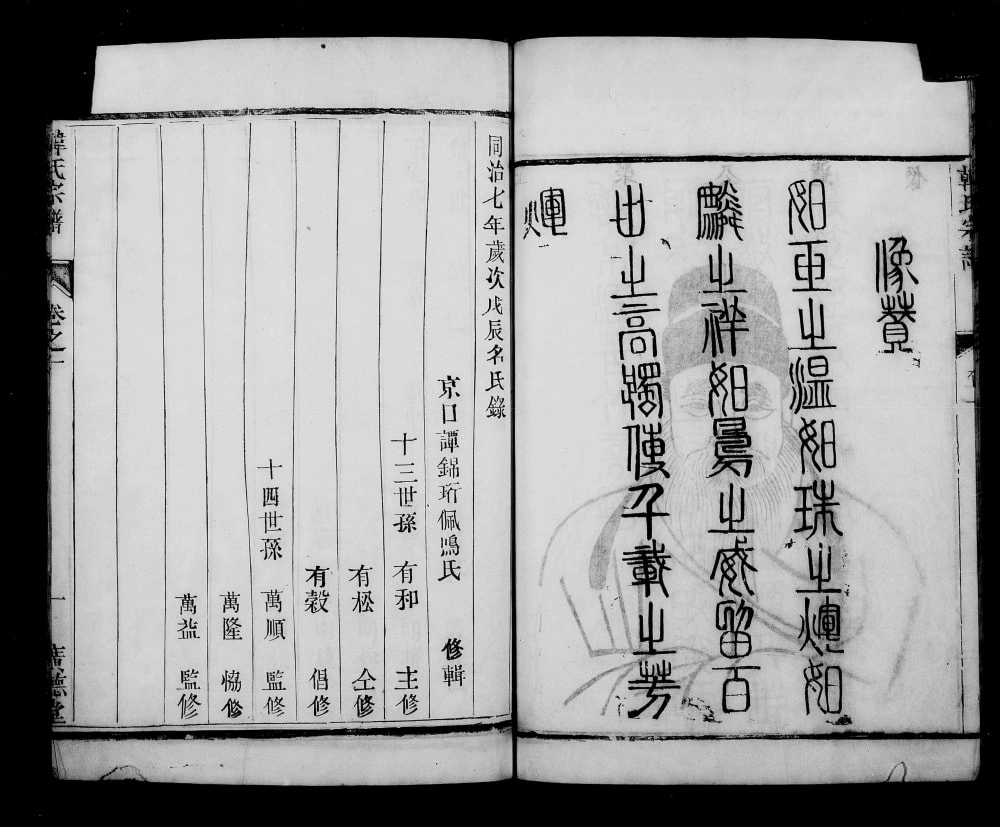 韓氏宗譜
像贊
如玉之温如珠之輝如
麟之祥如鳳之威留百
世之高躅使千載之芳
煇
同治七年歲次戊辰名氏錄
京口譚錦珩佩鳴氏 修輯
十三世孫 有和 主修
有松 仝修
有穀 倡修
十四世孫 萬順 監修
萬隆 恊修
萬益 監修
韓氏宗譜 卷之一 一